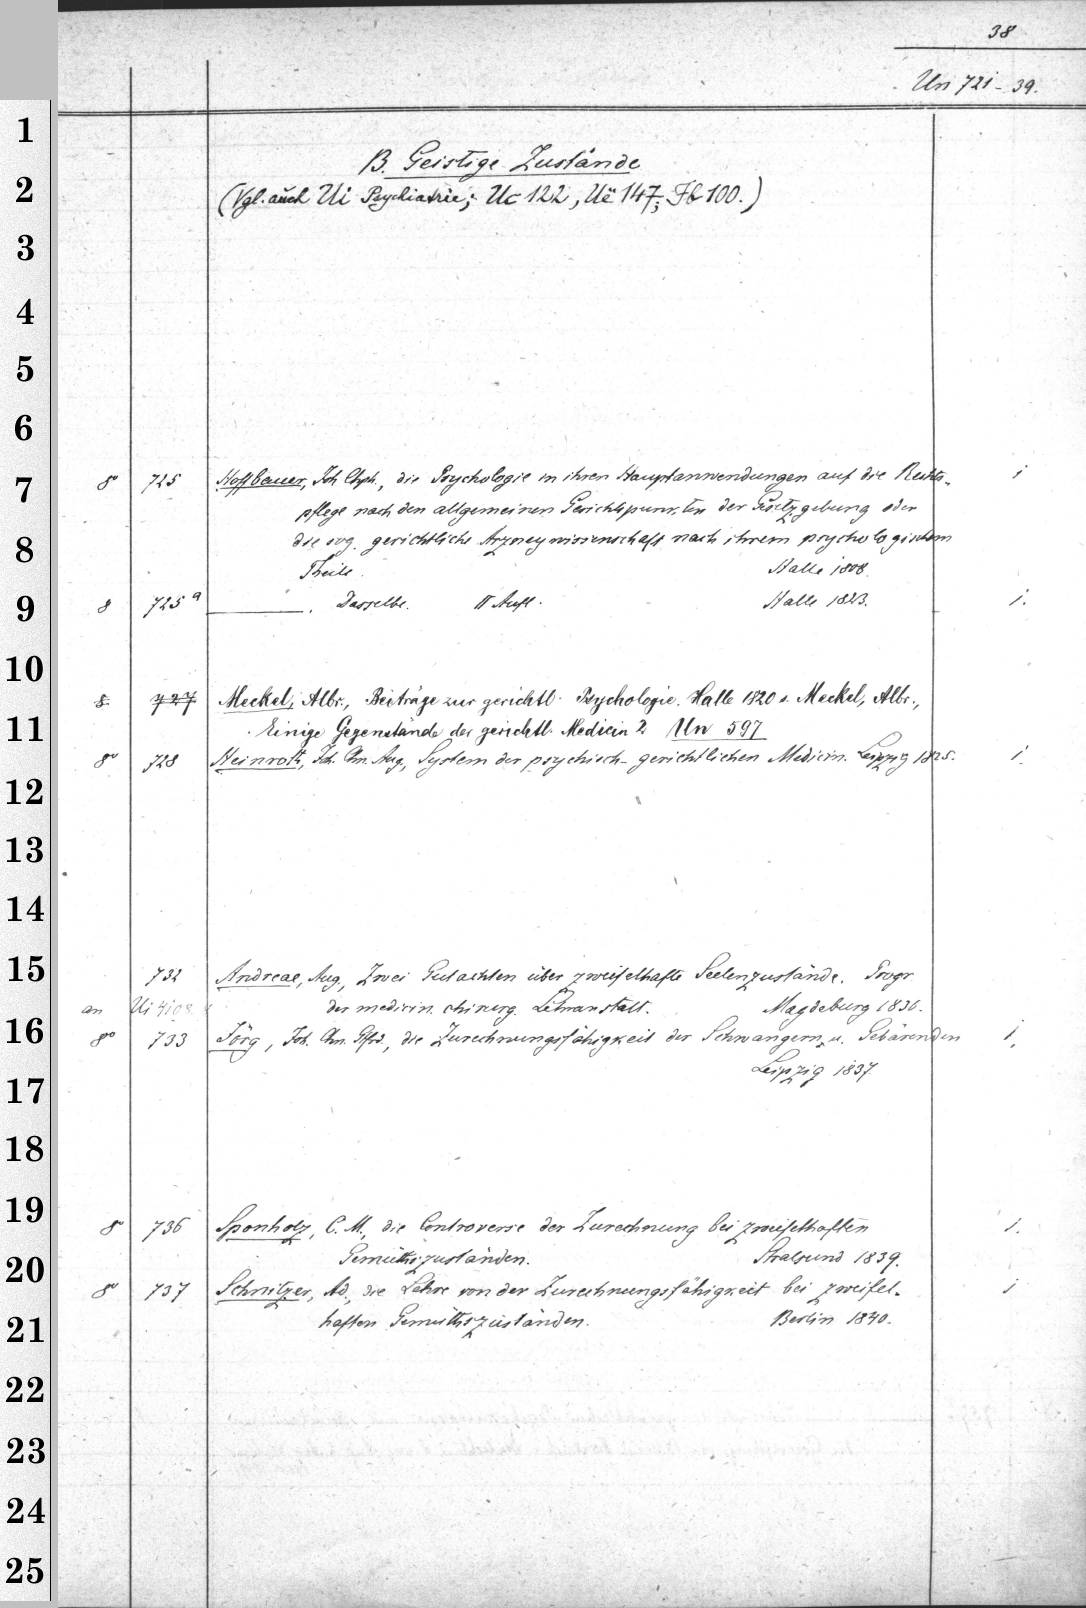 38
Un 721-39.
1
B. Geistige Zustände
2
(Vgl. auch Ui Psychiatrie; Uc 122, Uë 147; Fb 100.)
3
4
5
6
7
8° 725 Hoffbauer, Joh. Chph., die Psychologie in ihren Hauptanwendungen auf die Rechts- 1
pflege nach den allgemeinen Gesichtspunkten der Gesetzgebung oder
8
die sog. gerichtliche Arzneywissenschaft nach ihrem psychologischem
Theile. Halle 1808.
9
8 725a ———. Dasselbe. II Aufl. Halle 1823. 1.
10
8. 727 Meckel, Albr., Beiträge zur gerichtl. Psychologie. Halle 1820 s. Meckel, Albr.,
11
Einige Gegenstände der gerichtl. Medicin 2 Un 597
8° 728 Heinroth, Joh. Chn. Aug., System der psychisch-gerichtlichen Medicin. Leipzig 1825. 1.
12
13
14
15
732 Andreae, Aug., Zwei Gutachten über zweifelhafte Seelenzustände. Progr.
an Ui 4198 der medicin. chirurg. Lehranstalt. Magdeburg 1836.
16
8° 733 Jörg, Joh. Chn. Gfrd., die Zurechnungsfähigkeit der Schwangern u. Gebärenden 1.
Leipzig 1837.
17
18
19
8° 736 Sponholz, C. M., die Controverse der Zurechnung bei zweifelhaften 1.
Gemüthszuständen. Stralsund 1839.
20
8° 737 Schnitzer, Ad., die Lehre von der Zurechnungsfähigkeit bei zweifel- 1
haften Gemüthszuständen. Berlin 1840.
21
22
23
24
25